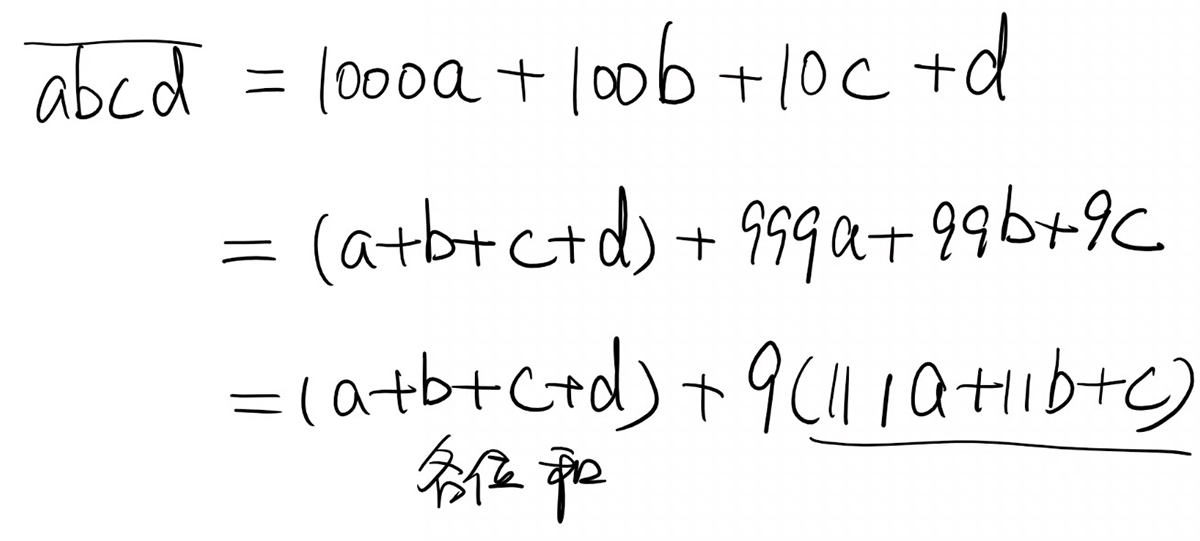 abcd = 1000a + 100b + 10c + d
= (a+b+c+d) + 999a + 99b + 9c
= (a+b+c+d) + 9(111a+11b+c)
各位和